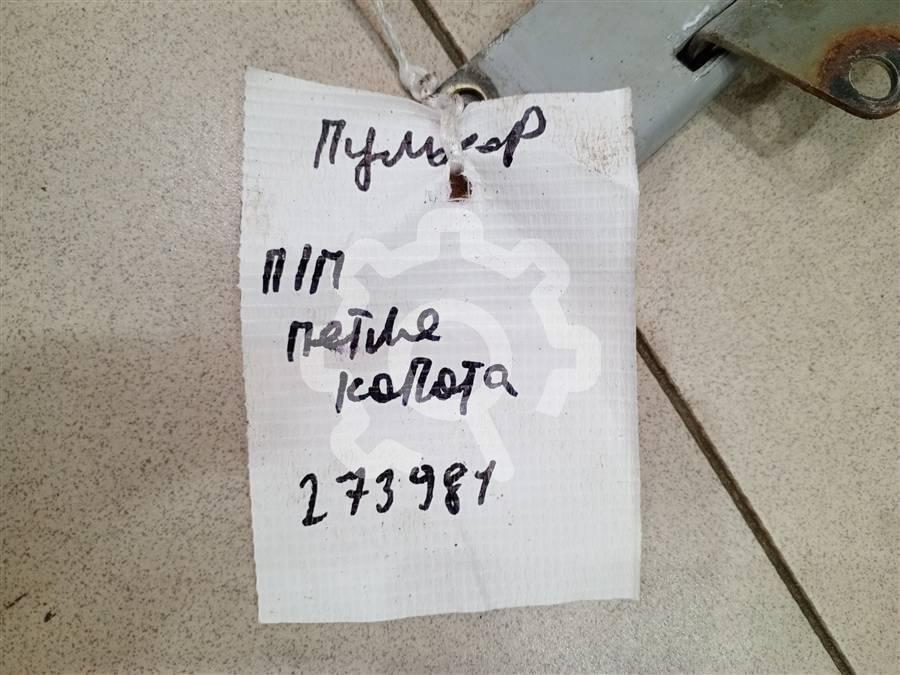 Пульсар
П/П
петля
капота
273981